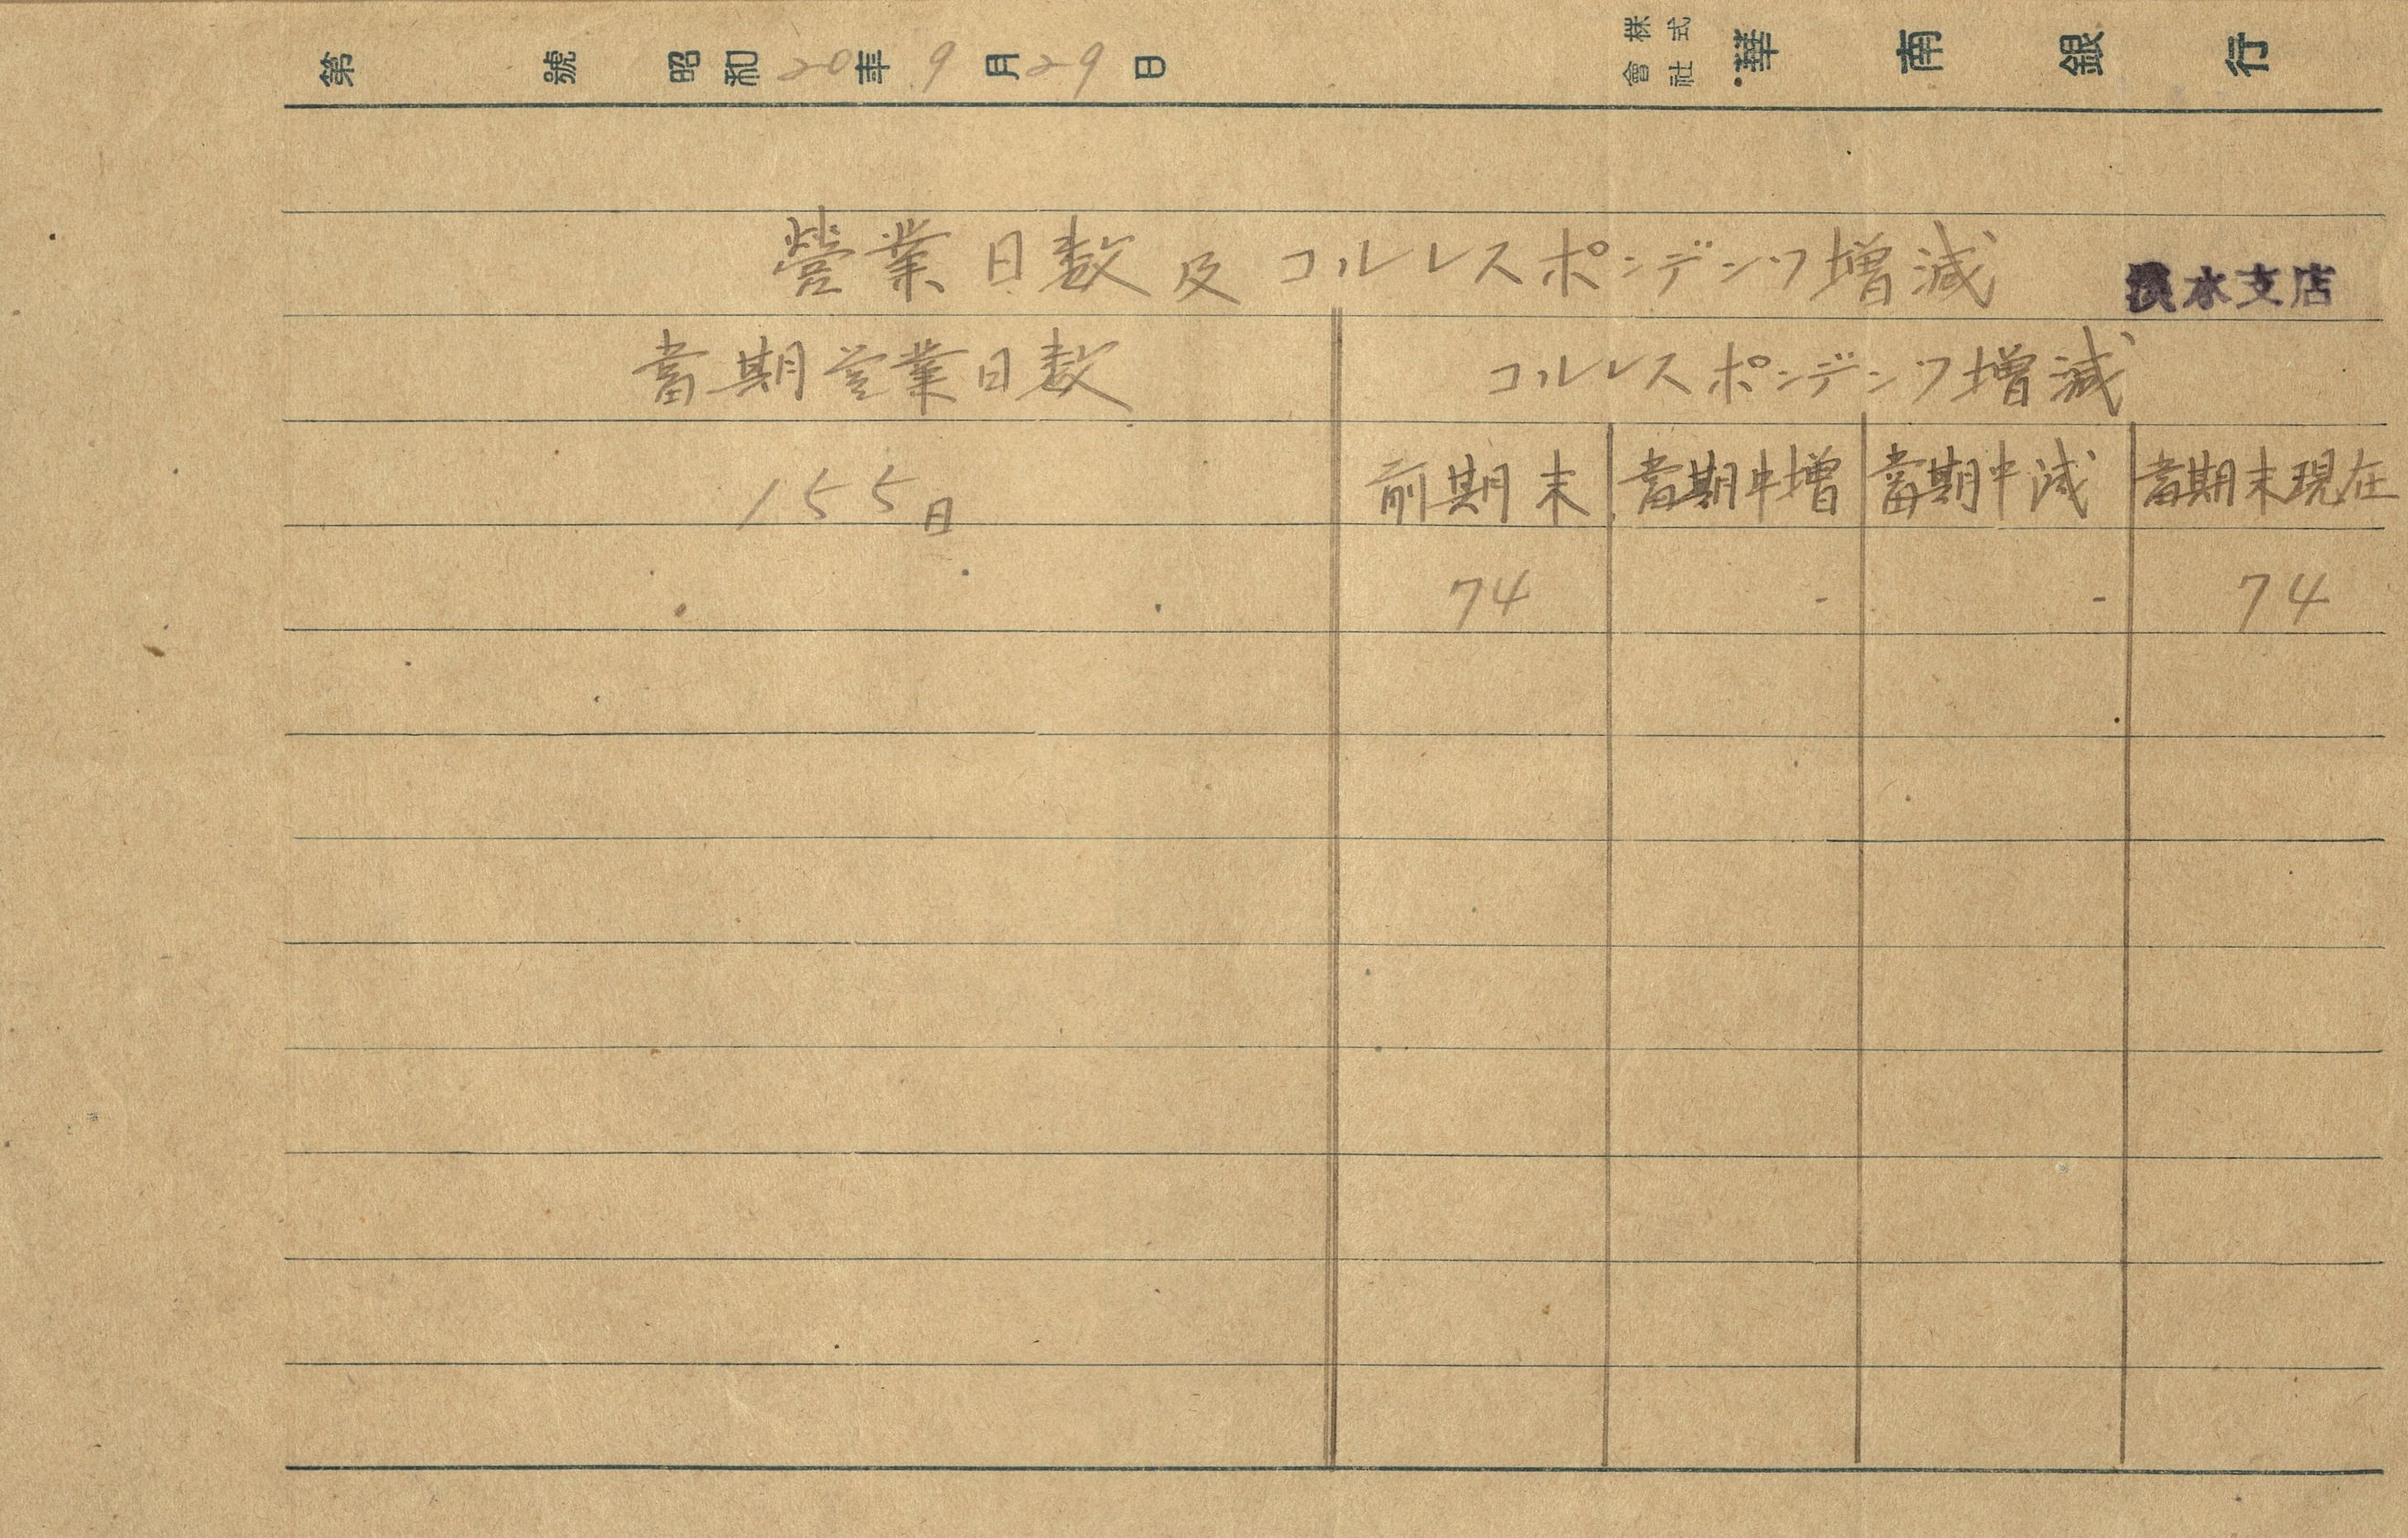 第 號 昭和20年9月29日 株式會社 華南銀行
營業日数及コルレスポンデンツ增減 淡水支店
當期営業日数 コルレスポンデンツ增減
155日 前期末 當期中增 當期中減 當期末現在
74 - - 74